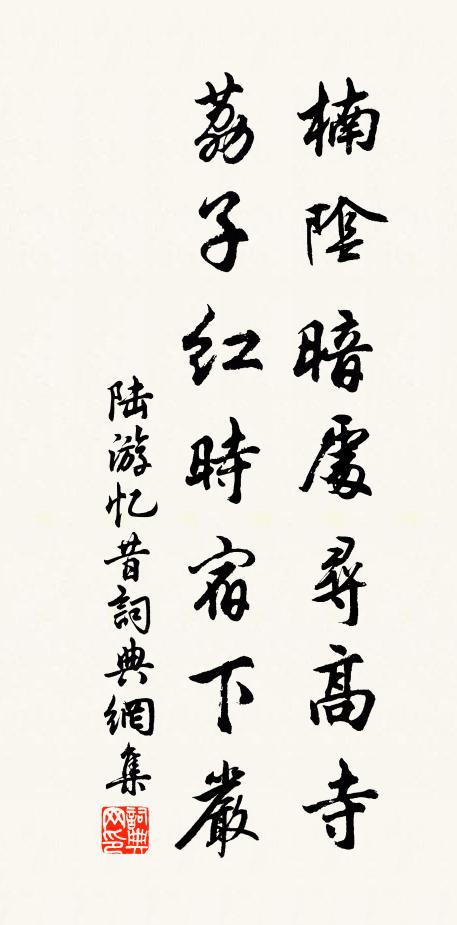 楠陰暗處尋高寺
荔子紅時宿下巖
陆游忆昔詞典網集
詞典網印